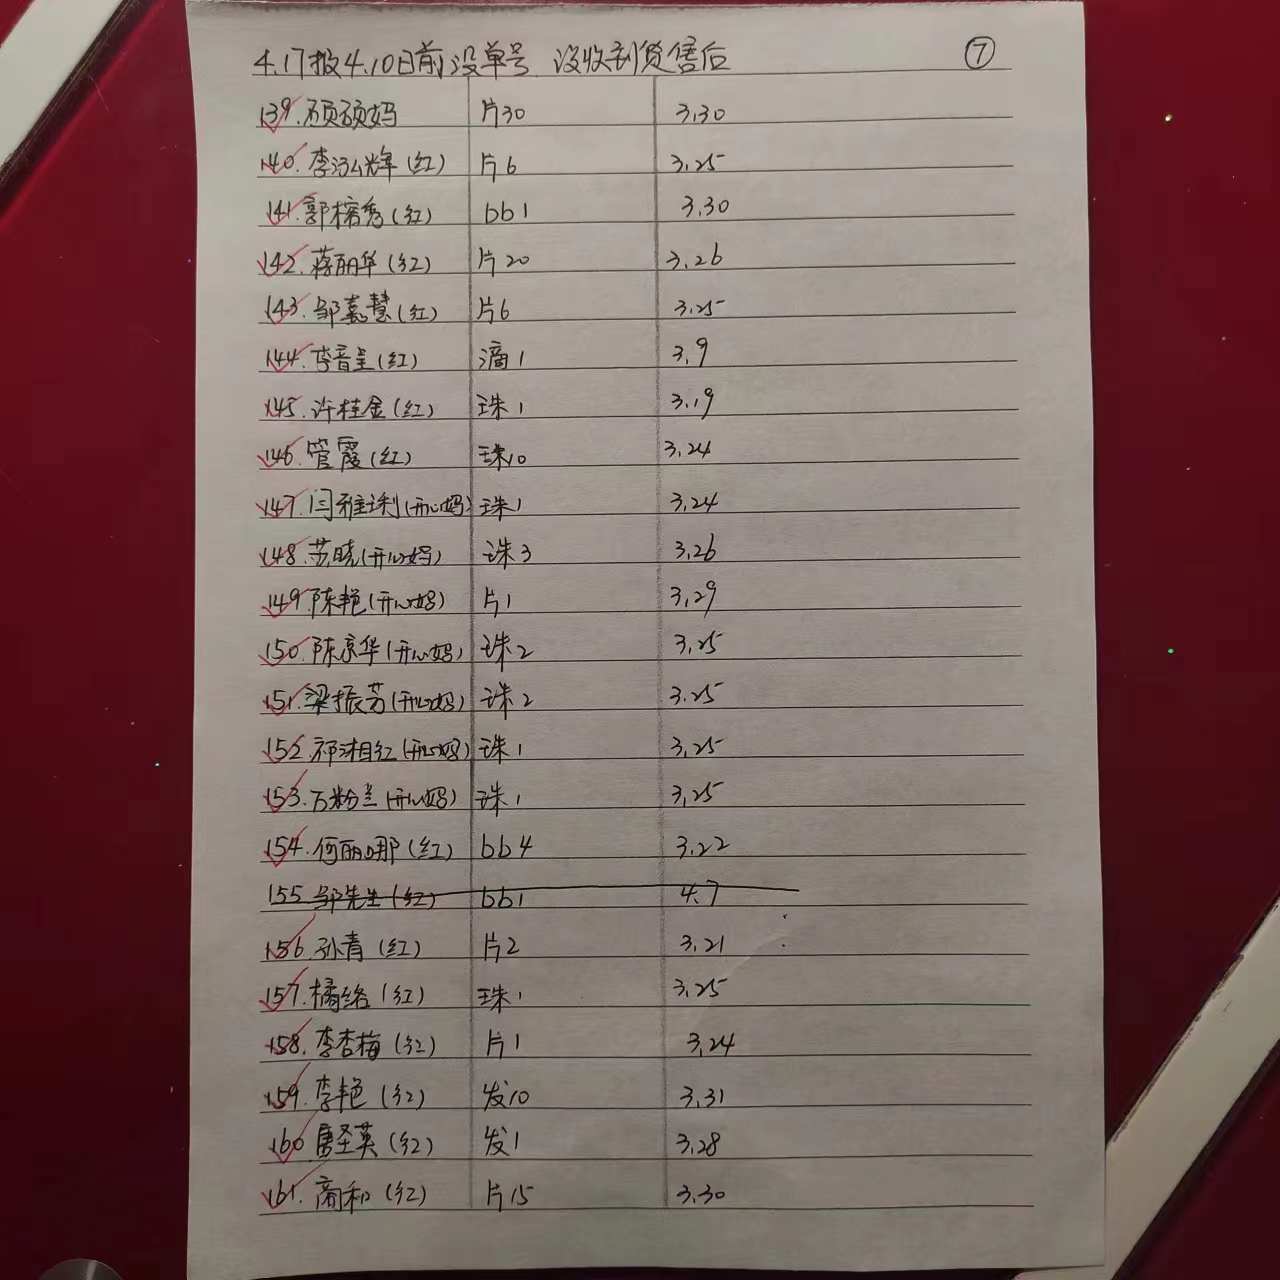 4.17报4.10日前没单号 没收到货售后 ⑦
139. 硕硕妈 片30 3.30
140. 李泓辉(红) 片6 3.25
141. 郭榕秀(红) bb1 3.30
142. 蒋丽华(红) 片20 3.26
143. 邹嘉慧(红) 片6 3.25
144. 李音呈(红) 滴1 3.9
145. 许桂金(红) 珠1 3.19
146. 管霞(红) 珠10 3.24
147. 闫雅琍(开心妈) 珠1 3.24
148. 苏晓(开心妈) 珠3 3.26
149. 陈艳(开心妈) 片1 3.29
150. 陈京华(开心妈) 珠2 3.25
151. 梁振芳(开心妈) 珠2 3.25
152. 祁湘红(开心妈) 珠1 3.25
153. 万粉兰(开心妈) 珠1 3.25
154. 何丽娜(红) bb4 3.22
155 邹先生(红) bb1 4.7
156. 孙青(红) 片2 3.21
157. 橘络(红) 珠1 3.25
158. 李杏梅(红) 片1 3.24
159. 李艳(红) 发10 3.31
160 唐圣英(红) 发1 3.28
161. 商和(红) 片15 3.30